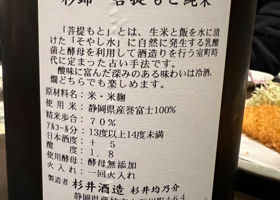 杉錦 菩提もと純米
「菩提もと」とは、生米と飯を水に漬
けた「そやし水」に自然に発生する乳酸
菌と酵母を利用して酒造りを行う室町時
代に定まった古い手法です。
酸味に富んだ深みのある味わいは冷酒、
燗どちらでも楽しめます。
原材料名：米・米麹
使用米：静岡県産誉富士100％
精米歩合：70％
アルコール分：13度以上14度未満
日本酒度：＋5
酸度：1.8
使用酵母：酵母無添加
火入れ：一回火入れ
製造者 杉井酒造 杉井均乃介
静岡県藤枝市